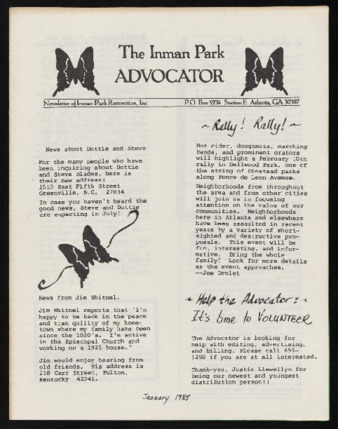 The Inman Park
ADVOCATOR
Newsletter of Inman Park Restoration, Inc.
P.O. Box 5234 Station E Atlanta, GA 30307
News about Dottie and Steve
For the many people who have
been inquiring about Dottie
and Steve Blades, here is
their new address:
1510 East Fifth Street
Greenville, N.C. 27834
In case you haven't heard the
good news, Steve and Dottie
are expecting in July!
News from Jim Whitnel.
Jim Whitnel reports that "I'm
happy to be back in the peace
and tranquility of my home-
town where my family have been
since the 1820's. I'm active
in the Episcopal Church and
working on a 1925 house."
Jim would enjoy hearing from
old friends. His address is
218 Carr Street, Fulton,
Kentucky 42041.
~ Rally! Rally! ~
Hot cider, doughnuts, marching
bands, and prominent orators
will highlight a February 10th
rally in Dellwood Park, one of
the string of Olmstead parks
along Ponce de Leon Avenue.
Neighborhoods from throughout
the area and from other cities
will join us in focusing
attention on the value of our
communities. Neighborhoods
here in Atlanta and elsewhere
have been assaulted in recent
years by a variety of short-
sighted and destructive pro-
posals. This event will be
fun, interesting, and infor-
mative. Bring the whole
family! Look for more details
as the event approaches.
--Joe Drolet
~ Help the Advocator: ~
It's time to VOLUNTEER
The Advocator is looking for
help with editing, advertising,
and billing. Please call 659-
1298 if you are at all interested.
Thank-you, Justin Llewellyn for
being our newest and youngest
distribution person!!
January 1985